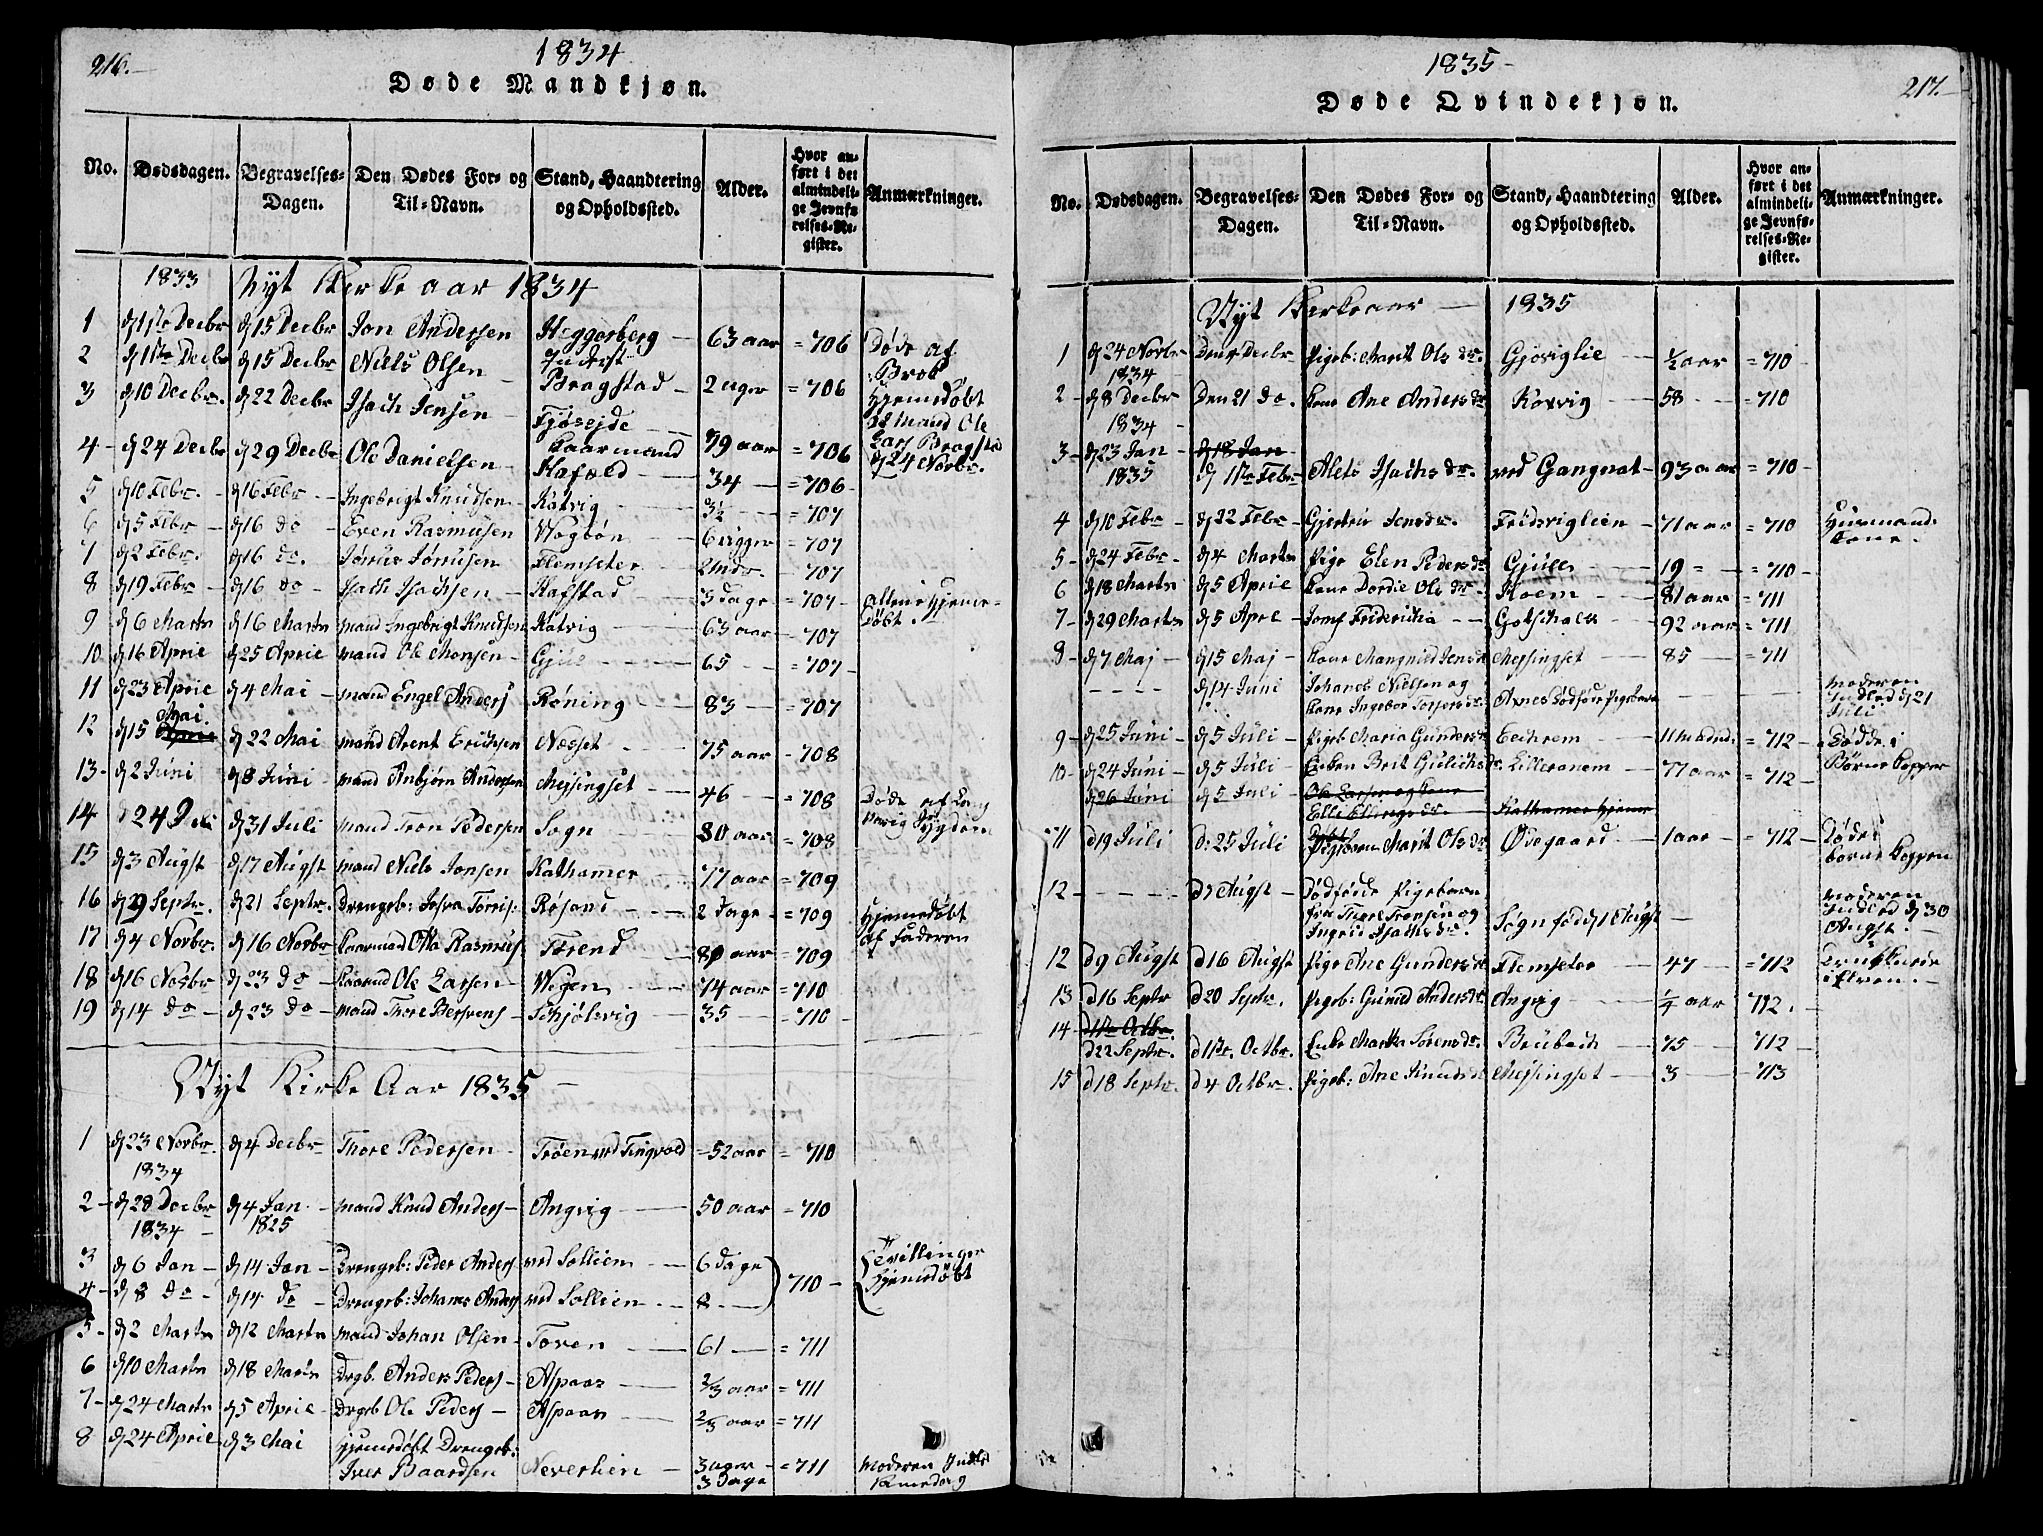 216.
1834
Døde Mandkjøn.
No. Dødsdagen. Begravelses-Dagen. Den Dødes For- og Til-Navn. Stand, Haandtering og Opholdssted. Alder. Hvor anført i det almindelige Jevnførelses-Register. Anmærkninger.
1833 Nyt Kirke aar 1834
1 d 1ste Decbr d 15 Decbr Jon Andersen Heggerberg 63 aar = 706 Døde af Brok
2 d 1ste Decbr d 15 Decbr Niels Olsen Bragstad 2 uger = 706 Hjemedøbt
3 d 10 Decbr. d 22 Decbr Isach Jensen Fjøseide 79 aar = 706
4 d 24 Decbr d 29 Decbr Ole Danielsen Kaarmand Hafald 34 = 706
5 d 10 Febr. d 16 Febr Ingebrigt Knudsen Katvig 3½ = 707
6 d 5 Febr d 16 do Even Rasmusen Wogbøn 6 uger = 707
7 d 2 Febr. d 16 do. Flemseter = 707
8 d 19 Febr d 16 do Isach Isachsen Kafstad 3 dage = 707
9 d 6 Martn d 16 Martn mand Ingebrigt Knudsen Katvig 63 aar = 707
10 d 16 Aprie d 25 Aprie mand Ole Monsen Gjul 65 = 707
11 d 23 Aprie d 4 Mai mand Engel Anders Røning 83 = 707
12 d 15 Mai. d 22 Mai mand Arent Erichsen Næsset 75 aar = 708
13 d 2 Juni d 8 Juni mand Anbjørn Andersen Mejsingset 46 = 708
14 d 24 Juli d 31 Juli mand Tron Pedersen Sogn 80 aar = 708 Døde af Lang varig Sygdom
15 d 3 Augst d 17 Augst mand Niels Jonsen Kathamer 77 aar = 709
16 d 9 Septr. d 21 Septr. Drengeb: Røsand 2 Dage = 709 Hjemedøbt af Faderen
17 d 4 Novbr. d 16 Novbr Kaarmand Otta Rasmus: Torend 80 aar = 709
18 d 16 Novbr d 23 do Ole Larsen Wigen 74 aar = 710
19 d 14 do d 23 do mand Thore Schjølsvig 35 = 710
Nyt Kirke Aar 1835
1 d 23 Novbr. 1834 d 4 Decbr Thore Pedersen Trøen ved Tingvold 52 aar = 710
2 d 28 Decbr 1834 d 4 Jan 1825 mand Knud Anders Angvig 50 aar = 710
3 d 6 Jan d 14 Jan Drengeb: Peder Anders ved Sollien 6 dage 710 Tvillinger Hjemedøbt
4 d 8 do d 14 do Drengeb: Johanes Anders ved Sollien 8
5 d 2 Martn d 12 Martn mand Johan Olsen Toven 61 = 711
6 d 10 Martn d 18 Martn Drgb. Anders Peders Aspaas ⅔ aar = 711
7 d 24 Martn d 5 Aprie Drgeb Ole Peders Aspaas aar = 711
8 d 24 Aprie d 3 Mai Hjemedøbt Drengeb: Iver Baardsen Neverlien 3 uger 3 Dage = 711 Moderen
1835
217.
Døde Qvindekjøn.
No. Dødsdagen. Begravelses-Dagen. Den Dødes For- og Til-Navn. Stand, Haandtering og Opholdssted. Alder. Hvor anført i det almindelige Jevnførelses-Register. Anmærkninger.
Nyt Kirkeaar 1835
1 d 24 Novbr 1834 Den 4 Decbr Pigeb: Marit Ols dr. Gjøviglie ½ aar = 710
2 d 8 Decbr 1834 Den 21 do. Kone Ane Anders dr Korsvig 58 = 710
3 d 23 Jan 1835 d 18 Jan d 1ste Febr Alets Isachs dr. ved Gangnat 93 aar = 710
4 d 10 Febr d 22 Febr Gjertru Jensdr. Fridsviglien 71 aar = 710 Huusmands Kone.
5 d 24 Febr d 4 Martn Pige Elen Peders dr Gjull 19 = 710
6 d 18 Martn d 5 Aprie Kone Dordie Ols dr Hoem 81 aar = 711
7 d 29 Martn d 5 Apre Jomf Fridericha Gotschalck 92 aar = 711
8 d 7 Maj d 15 Maj Kone Magnild Jensdr Mejsingset 85 = 711
d 14 Juni Johanes Nielsen og Kone Ingebor dødfødt Pigebarn Moderen Indled d 21 Juli
9 d 25 Juni d 5 Juli Pigeb Maria Gunders dr Eechrem 11 maaned. = 712 Døde i Børne Kopper
10 d 24 Juni d 5 Juli Enken Brit Gulichs dr. Lilleranem 77 aar = 712
d 26 Juni d 5 Juli Ole Larsen og Kone Elli Ellings dr. Kathamer hjemr
11 d 19 Juli d: 25 Juli Pigebarn Marit Ols dr Ødegaard 1 aar = 712 Døde Børne Koppen
12 d 2 Augst Dødfødde Pigebarn fra Thore Tronsen og Ingrid Isachs dr. Sogn fødd d 1 Augst Moderen Indled d 30 Augst.
12 d 9 Augst d 16 Augst Pige Ane Gunders dr Flemseter 47 = 712
13 d 16 Septr d 20 Septr. Pigeb: Gunild Anders dr Angvig ¼ aar 712.
14 d 1ste Octbr. d 22 Septr. d 11te. Octbr. Enke Marta Sørens dr. Beubach 75 712
15 d 18 Septr. d 4 Octbr. Pigeb: Ane Knuds dr Mejsingset 3 713